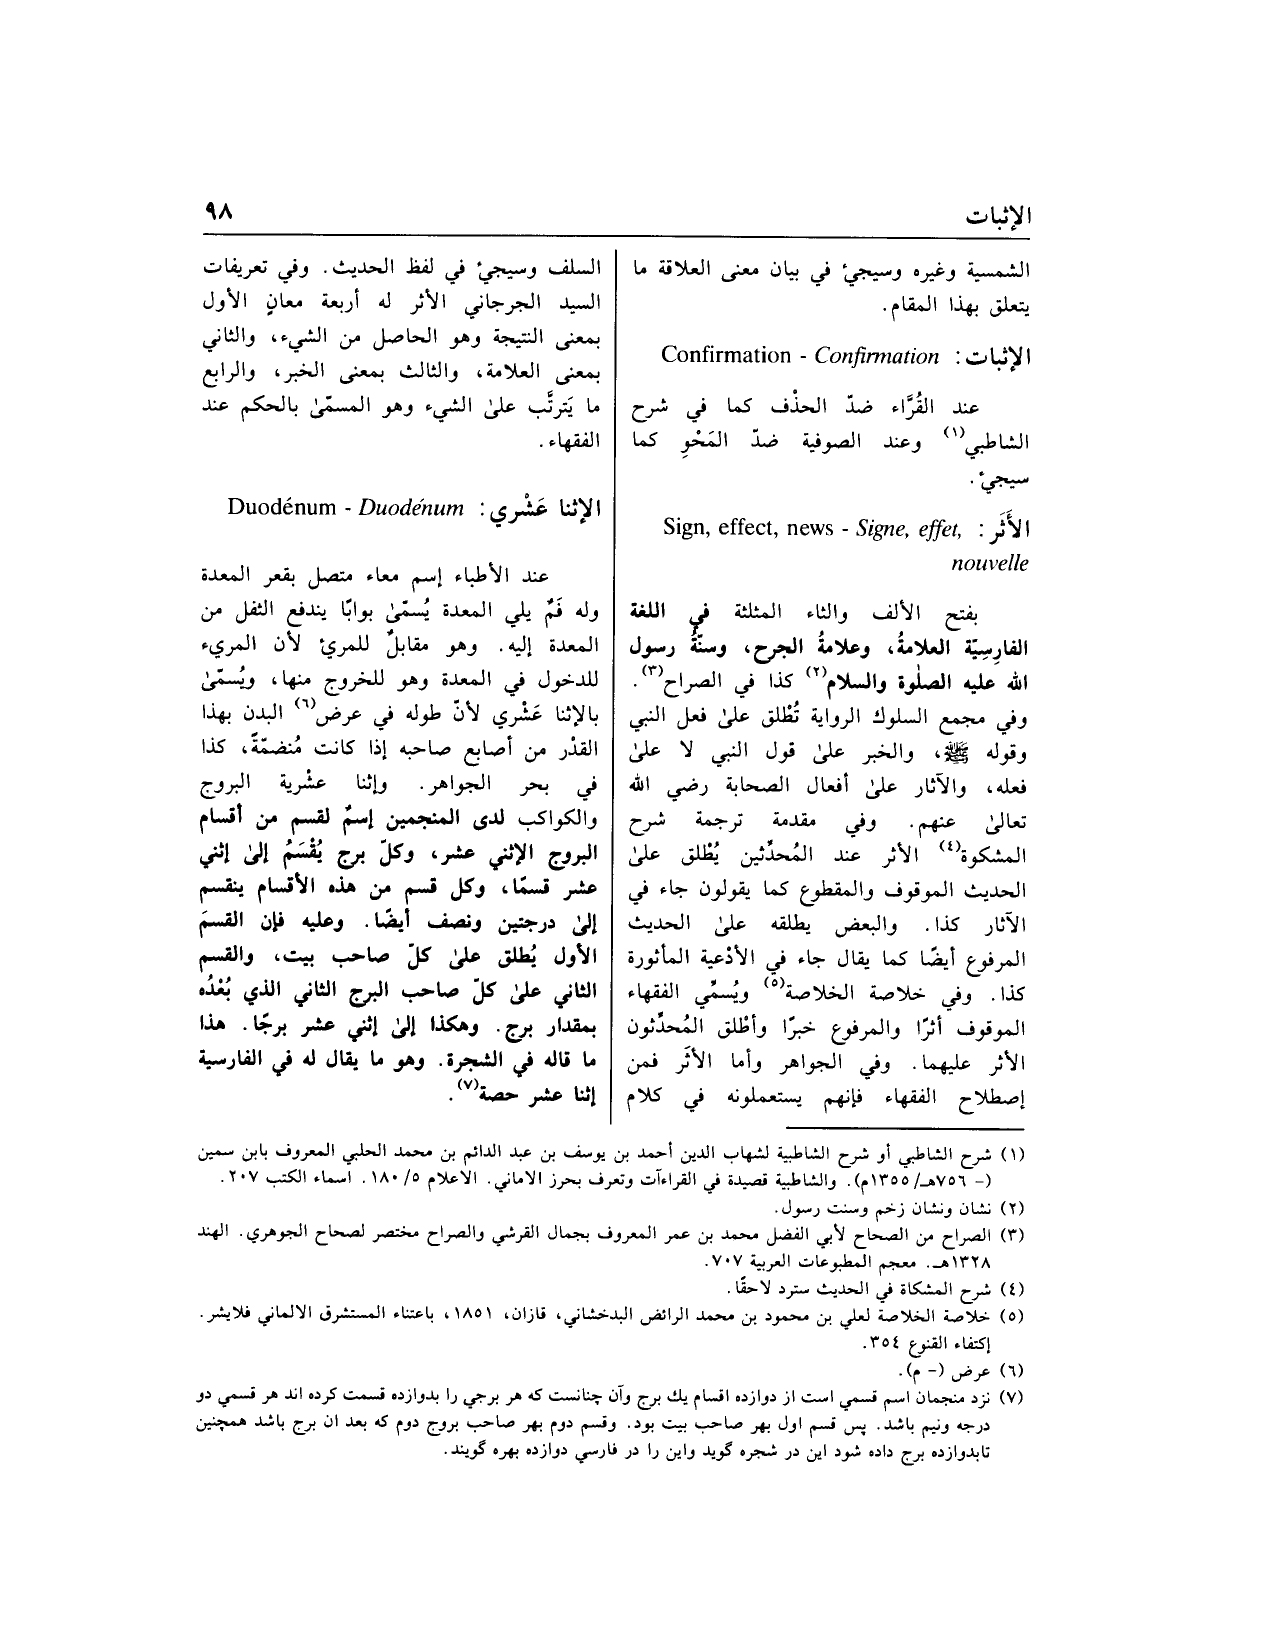 الإثبات
٩٨
الشمسية وغيره وسيجيء في بيان معنى العلاقة ما
يتعلق بهذا المقام.
الإثبات: Confirmation - Confirmation
عند القُرَّاء ضدّ الحذْف كما في شرح
الشاطبي(١) وعند الصوفية ضدّ المَحْوِ كما
سيجيء.
الأَثَر: Sign, effect, news - Signe, effet,
nouvelle
بفتح الألف والثاء المثلثة في اللغة
الفارِسِيّة العلامةُ، وعلامةُ الجرح، وسنّةُ رسول
الله عليه الصلٰوة والسلام(٢) كذا في الصراح(٣).
وفي مجمع السلوك الرواية تُطْلق علىٰ فعل النبي
وقوله ﷺ، والخبر علىٰ قول النبي لا علىٰ
فعله، والآثار علىٰ أفعال الصحابة رضي الله
تعالىٰ عنهم. وفي مقدمة ترجمة شرح
المشكوة(٤) الأثر عند المُحدِّثين يُطْلق علىٰ
الحديث الموقوف والمقطوع كما يقولون جاء في
الآثار كذا. والبعض يطلقه علىٰ الحديث
المرفوع أيضًا كما يقال جاء في الأدْعية المأثورة
كذا. وفي خلاصة الخلاصة(٥) ويُسمِّي الفقهاء
الموقوف أثرًا والمرفوع خبرًا وأطْلق المُحدِّثون
الأثر عليهما. وفي الجواهر وأما الأثَر فمن
إصطلاح الفقهاء فإنهم يستعملونه في كلام
السلف وسيجيء في لفظ الحديث. وفي تعريفات
السيد الجرجاني الأثر له أربعة معانٍ الأول
بمعنى النتيجة وهو الحاصل من الشيء، والثاني
بمعنى العلامة، والثالث بمعنى الخبر، والرابع
ما يَترتَّب علىٰ الشيء وهو المسمّىٰ بالحكم عند
الفقهاء.
الإثنا عَشْري: Duodénum - Duodénum
عند الأطباء إسم معاء متصل بقعر المعدة
وله فَمٌ يلي المعدة يُسمّىٰ بوابًا يندفع الثفل من
المعدة إليه. وهو مقابلٌ للمرئ لأن المريء
للدخول في المعدة وهو للخروج منها، ويُسمّىٰ
بالإثنا عَشْري لأنّ طوله في عرض(٦) البدن بهذا
القدْر من أصابع صاحبه إذا كانت مُنضمّةً، كذا
في بحر الجواهر. وإثنا عشْرية البروج
والكواكب لدى المنجمين إسمٌ لقسم من أقسام
البروج الإثني عشر، وكلّ برج يُقْسَمُ إلىٰ إثني
عشر قسمًا، وكل قسم من هذه الأقسام ينقسم
إلىٰ درجتين ونصف أيضًا. وعليه فإن القسمَ
الأول يُطلق علىٰ كلّ صاحب بيت، والقسم
الثاني علىٰ كلّ صاحب البرج الثاني الذي بُعْدُه
بمقدار برج. وهكذا إلىٰ إثني عشر برجًا. هذا
ما قاله في الشجرة. وهو ما يقال له في الفارسية
إثنا عشر حصة(٧).
(١) شرح الشاطبي أو شرح الشاطبية لشهاب الدين أحمد بن يوسف بن عبد الدائم بن محمد الحلبي المعروف بابن سمين
(- ٧٥٦هـ/ ١٣٥٥م). والشاطبية قصيدة في القراءآت وتعرف بحرز الاماني. الاعلام ٥/ ١٨٠. اسماء الكتب ٢٠٧.
(٢) نشان ونشان زخم وسنت رسول.
(٣) الصراح من الصحاح لأبي الفضل محمد بن عمر المعروف بجمال القرشي والصراح مختصر لصحاح الجوهري. الهند
١٣٢٨هـ. معجم المطبوعات العربية ٧٠٧.
(٤) شرح المشكاة في الحديث سترد لاحقًا.
(٥) خلاصة الخلاصة لعلي بن محمود بن محمد الرائض البدخشاني، قازان، ١٨٥١، باعتناء المستشرق الالماني فلايشر.
إكتفاء القنوع ٣٥٤.
(٦) عرض (- م).
(٧) نزد منجمان اسم قسمي است از دوازده اقسام يك برج وآن چنانست كه هر برجي را بدوازده قسمت كرده اند هر قسمي دو
درجه ونيم باشد. پس قسم اول بهر صاحب بيت بود. وقسم دوم بهر صاحب بروج دوم كه بعد ان برج باشد همچنين
تابدوازده برج داده شود اين در شجره گويد واين را در فارسي دوازده بهره گويند.